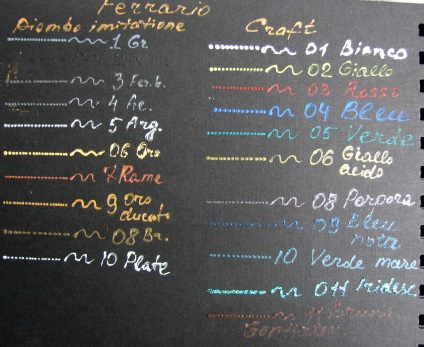 Ferrario
Piombo imitatione
1 Gr
3 Ferb.
4 Ac.
5 Arg.
06 Oro
7 Rame
9 oro
ducato
08 Br.
10 Plate
Craft
01 Bianco
02 Giallo
03 Rosso
04 Bleu
05 Verde
06 Giallo
acido
08 Porpora
09 Bleu
notte
10 Verde mare
011 Iridesc
11 Bruno